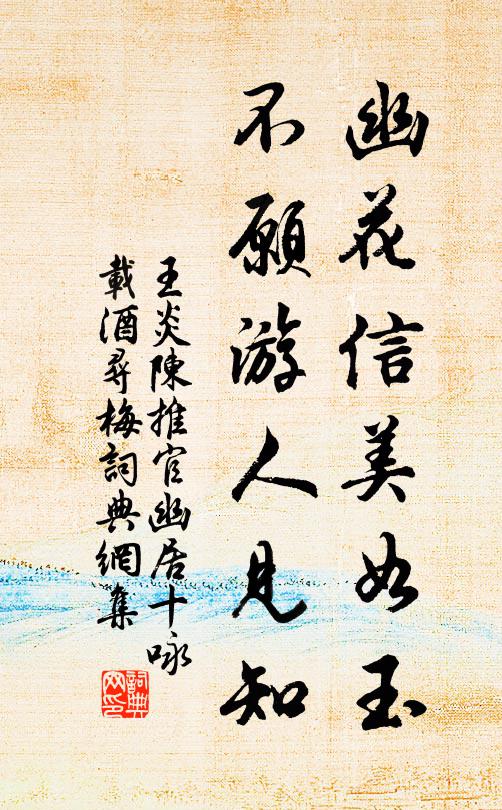 幽花信美如玉
不願游人見知
王炎陳推官幽居十咏
載酒尋梅詞典網集
詞典网印